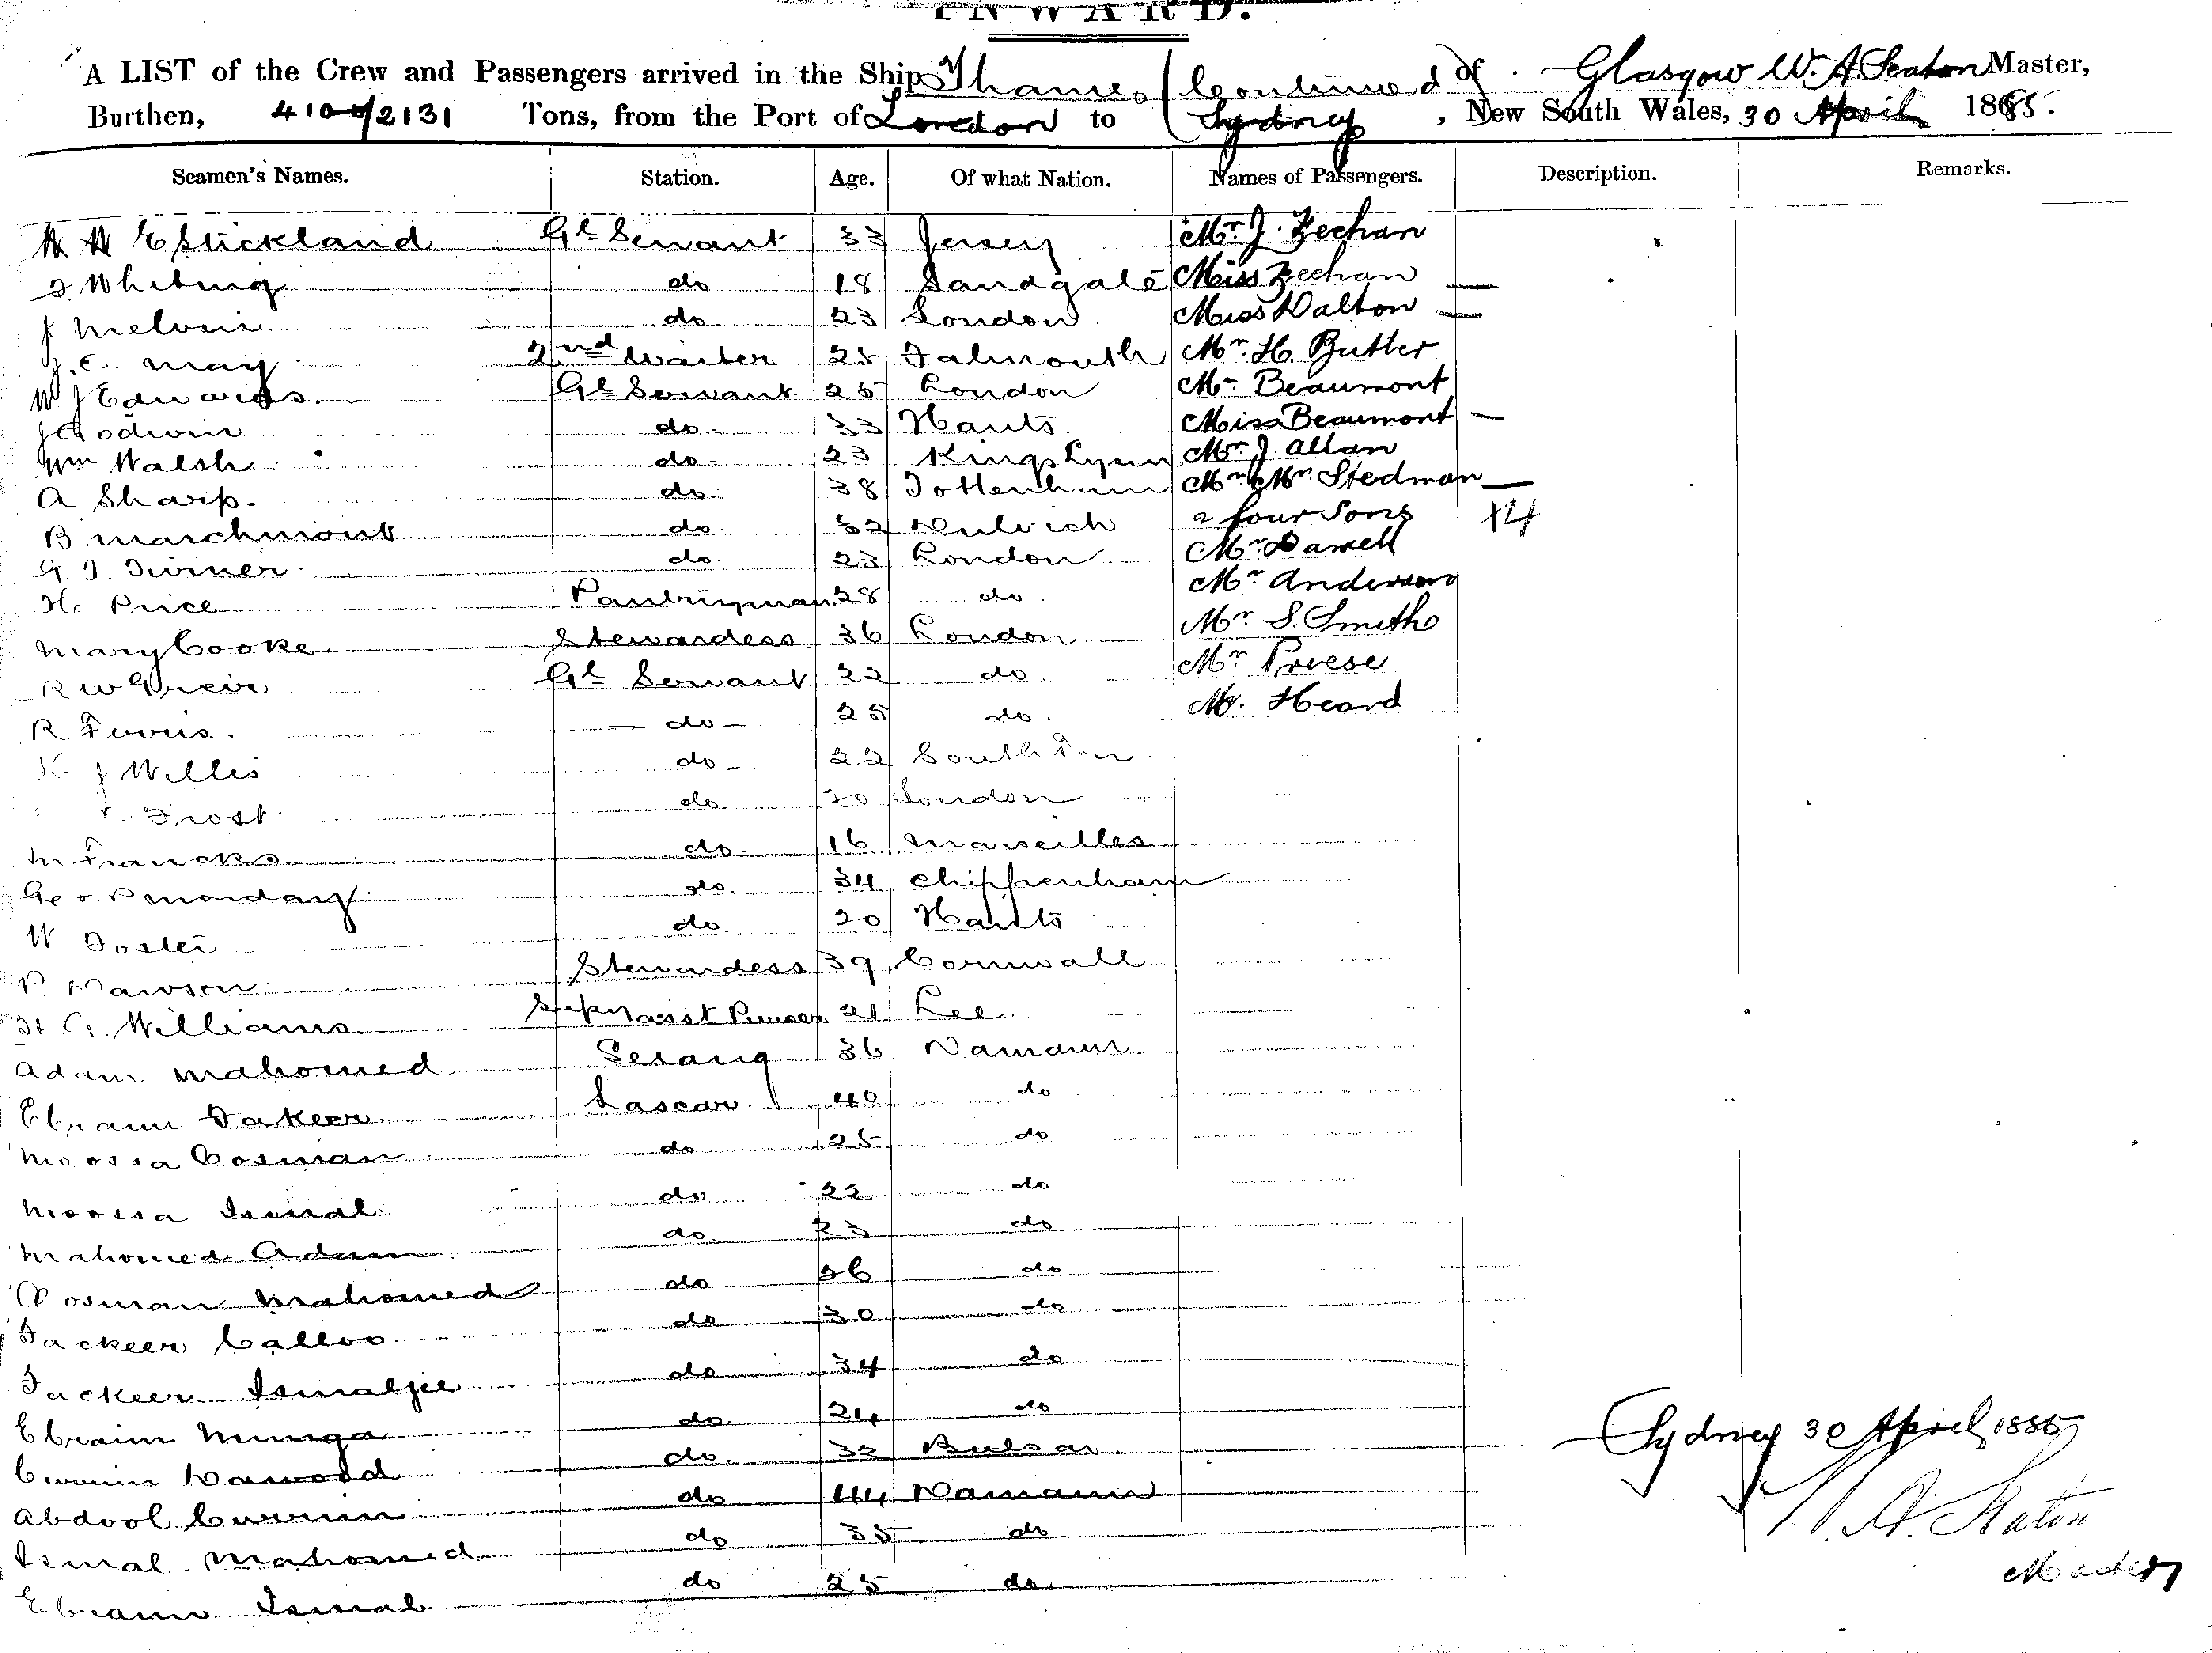 INWARD.
A LIST of the Crew and Passengers arrived in the Ship Thames (Continued of Glasgow W. A. Seaton Master,
Burthen, 4100/2131 Tons, from the Port of London to Sydney, New South Wales, 30 April 1885.
Seamen's Names. Station. Age. Of what Nation. Names of Passengers. Description. Remarks.
E Stickland Gl Servant 33 Jersey Mr. J. Zechan
Whiting do 18 Sandgate Miss Zechan —
J Melvin do 23 London Miss Dalton —
E. May 2nd Waiter 25 Falmouth Mr. H. Butler
W J Edwards Gl Servant 25 London Mr Beaumont
J Godwin do 33 Hants Miss Beaumont —
Wm Walsh do 23 Kings Lynn Mr. J. Allan
A Sharp. do 38 Tottenham Mr & Mrs. Stedman —
B Marchmont do 32 Dulwich & four Sons +4
G J. Turner do 23 London Mr Darvell
H Price Pantryman 28 do Mr Anderson
Mary Cooke Stewardess 36 London Mr. S. Smith
R W Greir Gl Servant 22 do Mr Preese
R Ferris do 25 do Mr. Heard
J Willis do 22 South
Frost do 20 London
M Francks do 16 Marseilles
Geo P Monday do 34 Chippenham
W Foster do 20 Hants
P Mawson Stewardess 39 Cornwall
Williams Supy Asst Purser 21 Lee
Adam Mahomed Serang 36 Damaun
Ebraim Fakeer Lascar 40 do
Moossa Cosman do 25 do
Moossa Ismal do 22 do
Mahomed Adam do 23 do
Oosman Mahomed do 26 do
Fackeer Calloo do 30 do
Fackeer Ismaljee do 34 do
Ebraim Munga do 24 do
Currim Dawood do 32 Bulsar
Abdool Currim do 44 Damaun
Ismal Mahomed do 35 do
Ebraim Ismal do 25 do
Sydney 30 April 1885
W. A. Seaton
Master